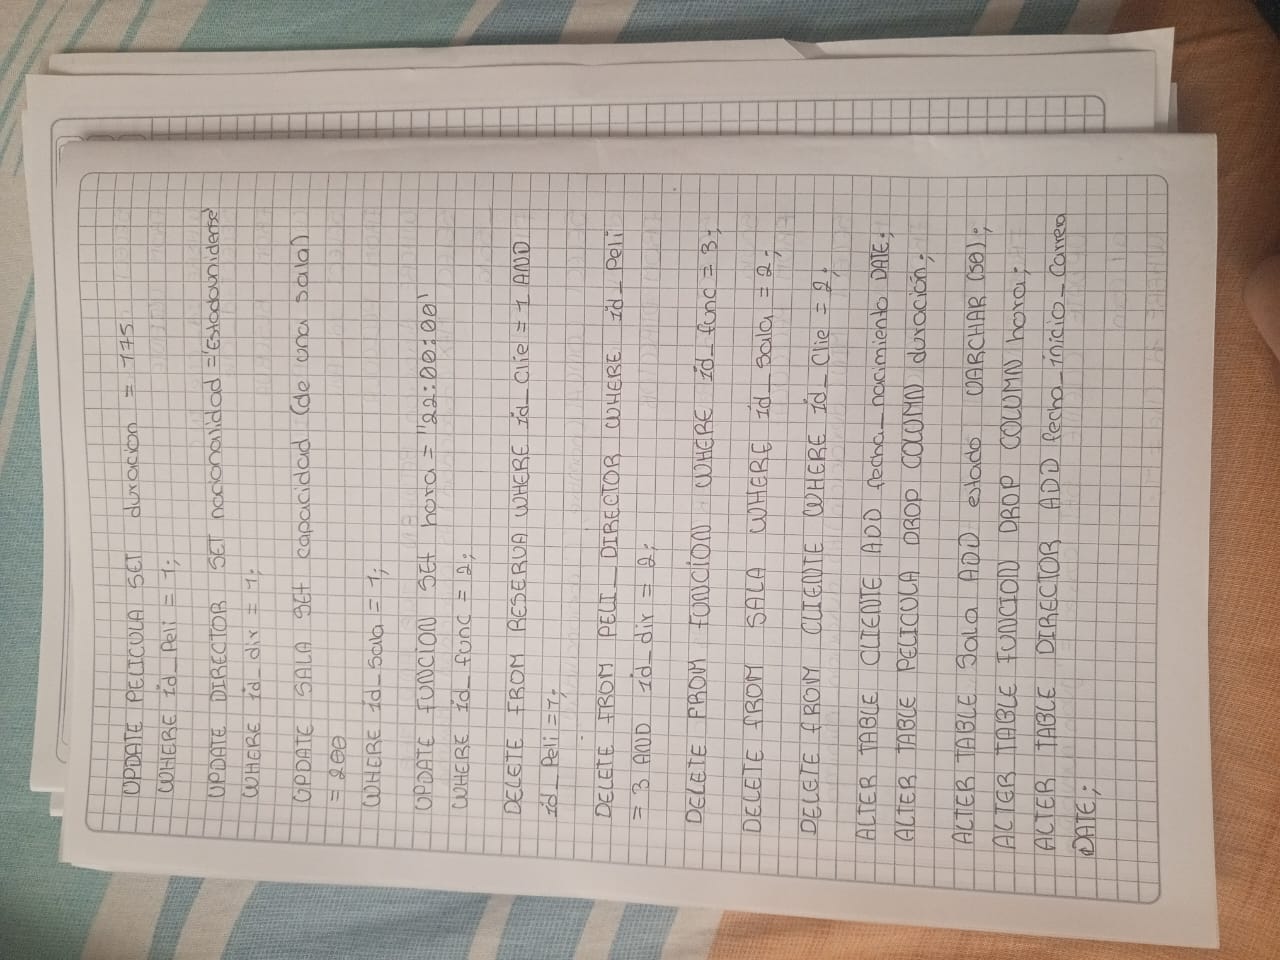 UPDATE PELICULA SET duracion = 175
WHERE id_Peli = 1;
UPDATE DIRECTOR SET nacionalidad = 'Estadounidense'
WHERE id_dir = 1;
UPDATE SALA SET capacidad (de una sala)
= 200
WHERE id_sala = 1;
UPDATE FUNCION SET hora = "22:00:00'
WHERE id_func = 2;
DELETE FROM RESERVA WHERE id_Clie = 1 AND
id_Peli = 1;
DELETE FROM PELI_DIRECTOR WHERE id_Peli
= 3 AND id_dir = 2;
DELETE FROM FUNCION WHERE id_func = 3;
DELETE FROM SALA WHERE id_sala = 2;
DELETE FROM CLIENTE WHERE id_Clie = 2;
ALTER TABLE CLIENTE ADD fecha_nacimiento DATE;
ALTER TABLE PELICULA DROP COLUMN duración;
ALTER TABLE Sala ADD estado VARCHAR (50);
ALTER TABLE FUNCION DROP COLUMN hora;
ALTER TABLE DIRECTOR ADD fecha_inicio_Correo
DATE;